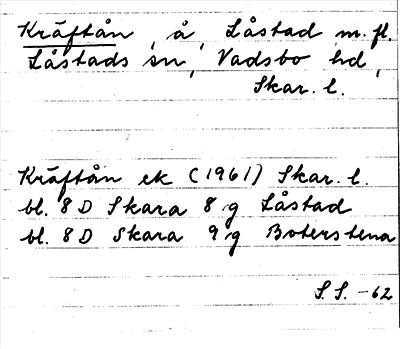 Kräftån, å, Låstad m. fl.
Låstads sn, Vadsbo hd,
Skar. l.
Kräftån ek (1961) Skar. l.
bl. 8 D Skara 8 g Låstad
bl. 8 D Skara 9 g Boterstena
S. S. -62